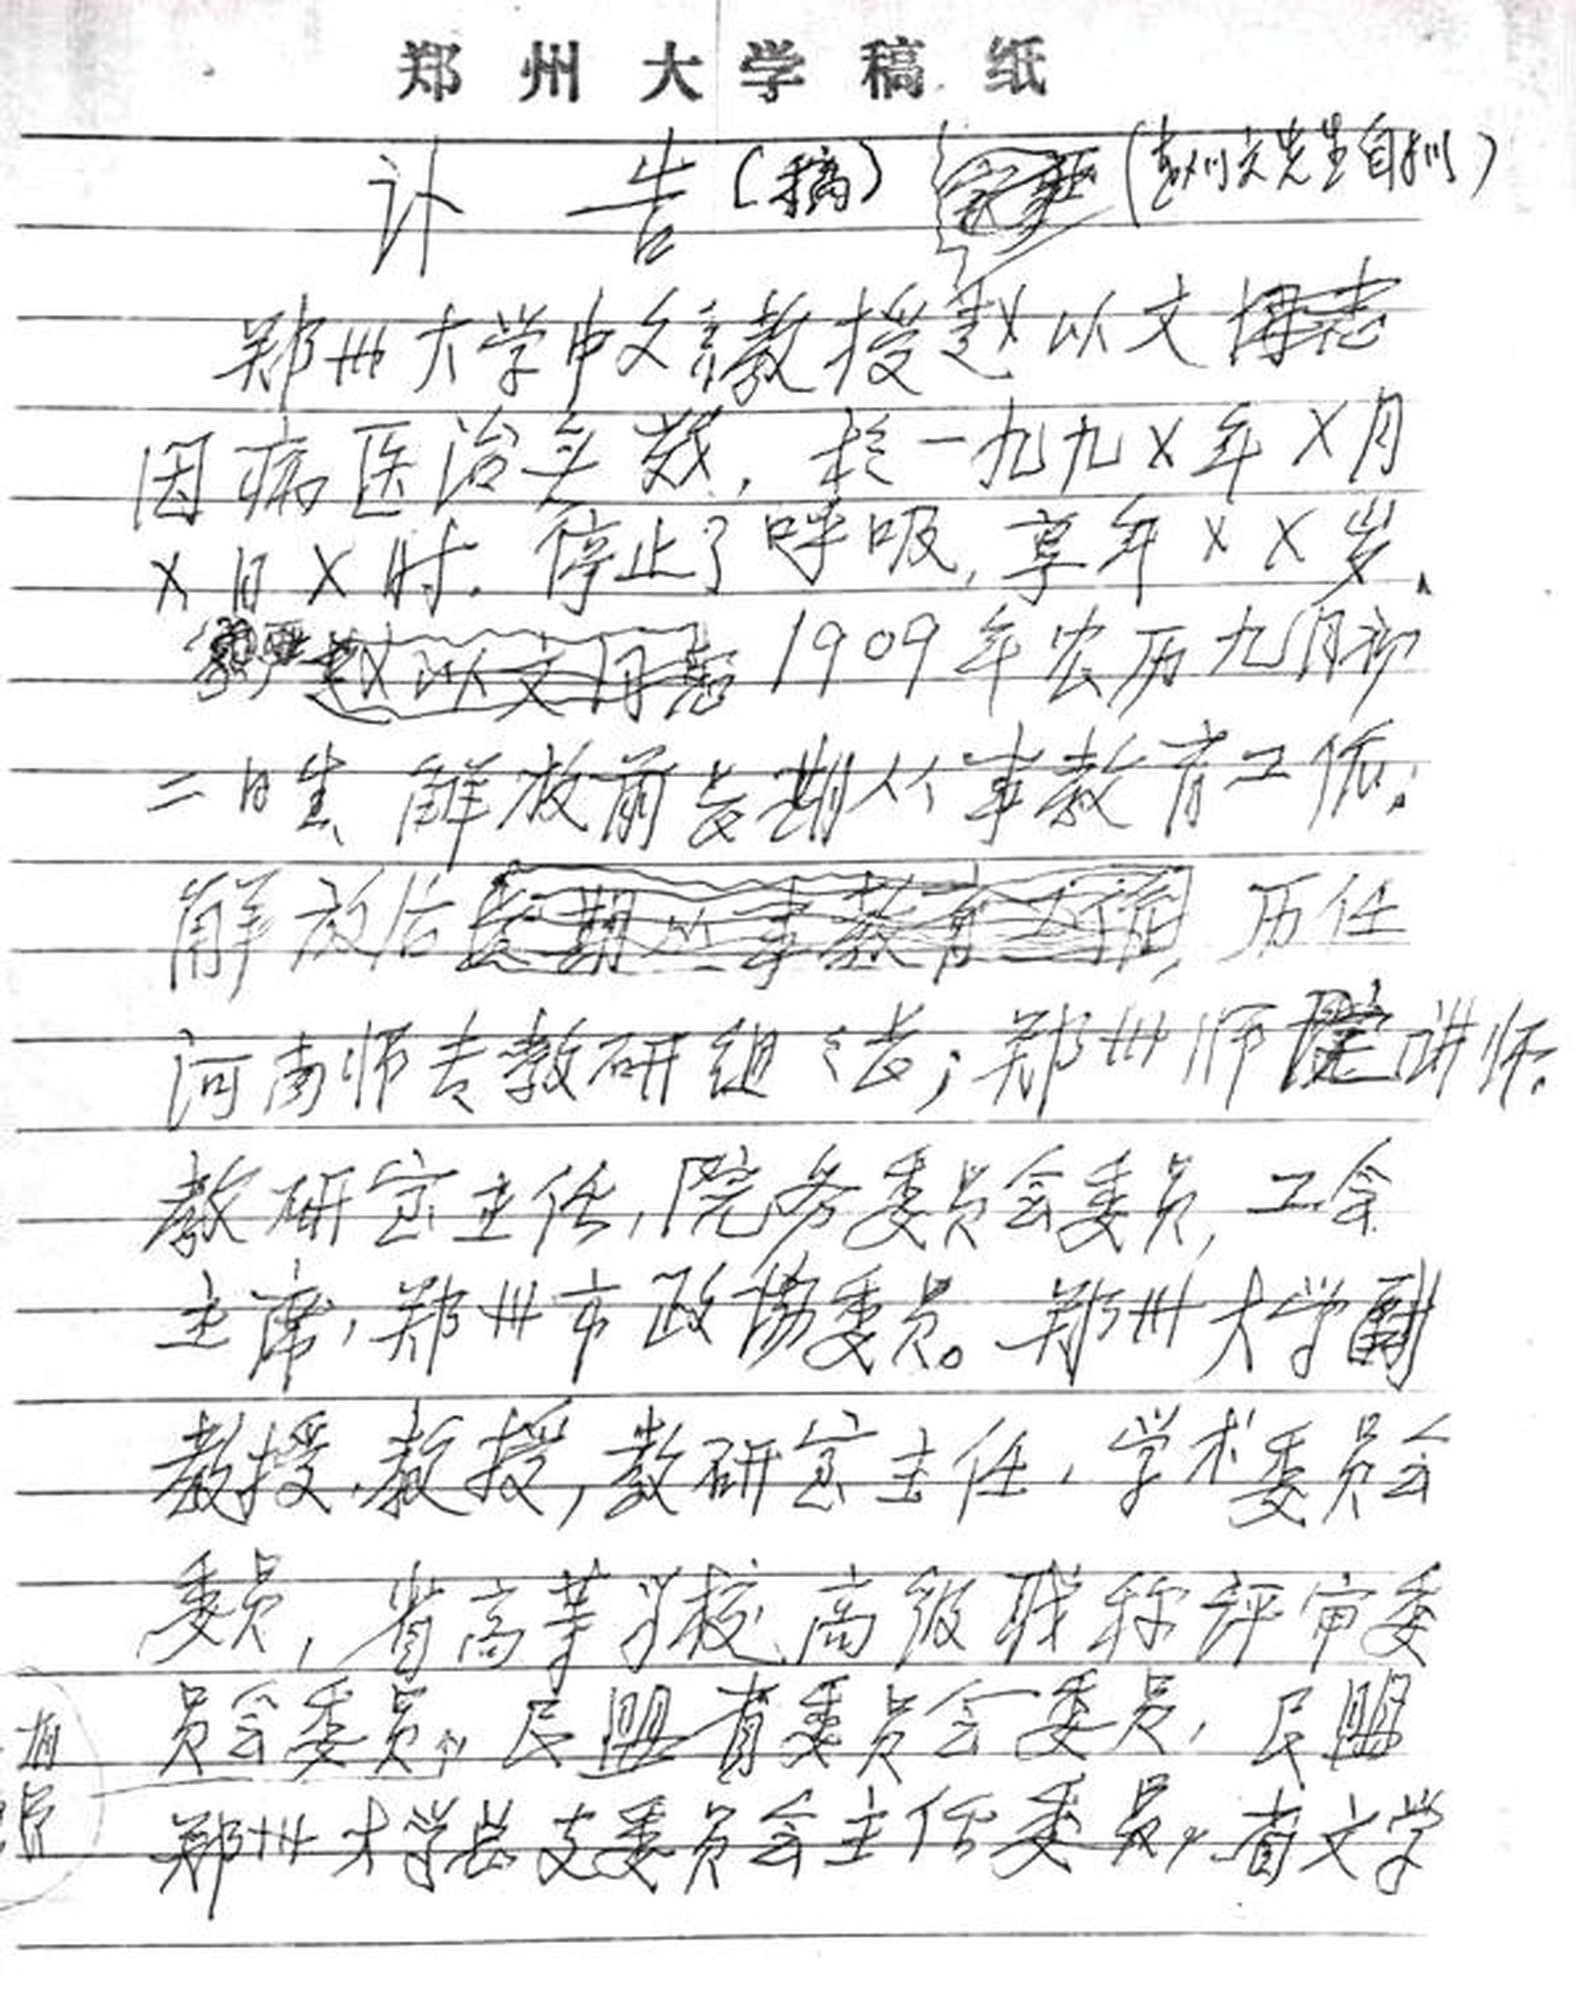 郑州大学稿纸
讣告(稿) (赵以文先生自拟)
郑州大学中文系教授赵以文同志
因病医治无效,于一九九X年X月
X日X时,停止了呼吸,享年XX岁。
赵以文同志 1909年农历九月初
二日生,解放前长期从事教育工作;
解放后长期从事教育工作,历任
河南师专教研组组长;郑州师院讲师、
教研室主任,院务委员会委员,工会
主席,郑州市政协委员。郑州大学副
教授、教授,教研室主任,学术委员会
委员,省高等学校高级职称评审委
员会委员,民盟省委员会委员,民盟
郑州大学总支委员会主任委员,省文学